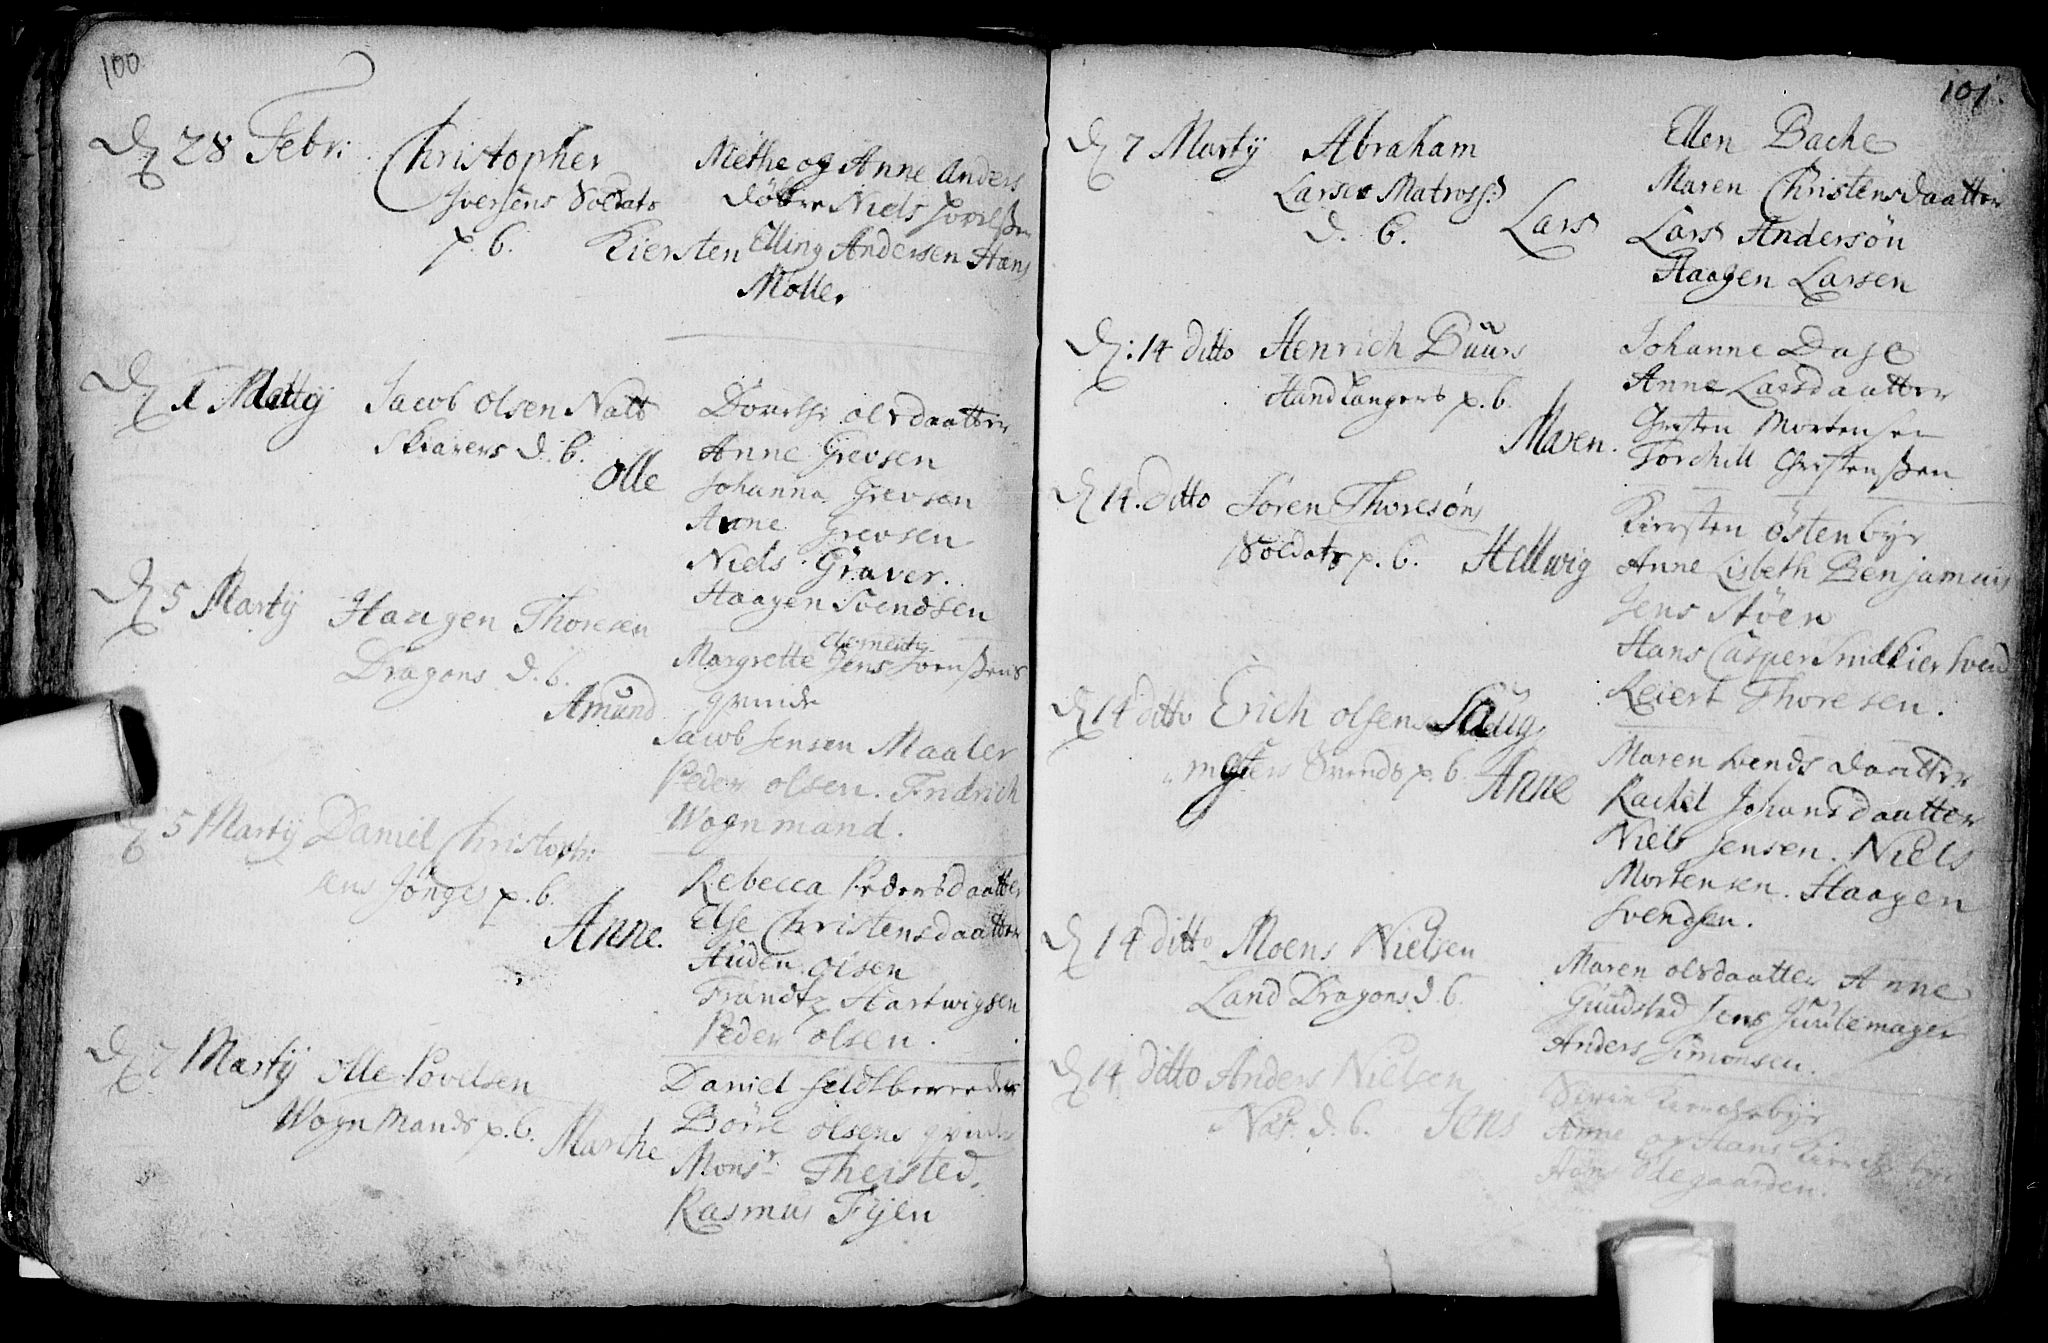 100
D 28 Febr: Christopher
Iversens Soldats
p. b. Kiersten
Methe og Anne Anders
døttre Niels
Elling Andersen Hans
Møller
D 1 Martij Jacob Olsen Natt
Skiærers d. b.
Olle
Dorethe olsdaatter
Anne Grevsen
Johanna Grevsen
Anne Grevsen
Niels Graver.
Haagen Svendsen
D 5 Martij Haagen Thoresen
Dragons d. b.
Amund
Margrette Jens
qvinde
Jacob Jensen Maaler
Peder olsen. Fridrich
Wognmand.
D 5 Martij Daniel Christoph:
sens p. b.
Anne.
Rebecca Pedersdaatter
Else Christensdaatter
Auden olsen
Frandtz Hartwigsen
Peder olsen.
D 7 Martij Olle Povelsen
Wogn Mands p. b. Marthe
Daniel Feldtberreder
Børre olsens qvinde
Monsr Theisted.
Rasmus Fyen
101.
D 7 Martij Abraham
Larsen Matross:
d. b. Lars
Ellen Bache
Maren Christensdaatter
Lars Andersøn
Haagen Larsen
D: 14 ditto Henrich Buurs
Handlangers p. b.
Maren.
Johanne
Anne Larsdaatter
Christen Mortensen
Torchill Christenssen
D 14. ditto Søren Thoresøns
Soldats p. b. Hellwig
Kiersten Østenbye
Anne Lisbeth Benjamins
Jens Støen
Hans Casper Snidkier Svend
Reiert Thoresen.
D 14 ditto Erich olsens Saug
mesters Svends p. b. Anne
Maren Svends daatter
Rachel Johansdaatter
Niels Jensen. Niels
Mortensen. Haagen
Svendsen.
D 14 ditto Moens Nielsen
Land Dragons d. b.
Maren olsdaatter Anne
Guudsted Jens
Anders Simonsen.
D 14 ditto Anders Nielsen
d. b. Jens
Anne og Hans
Hans Ødegaarden.